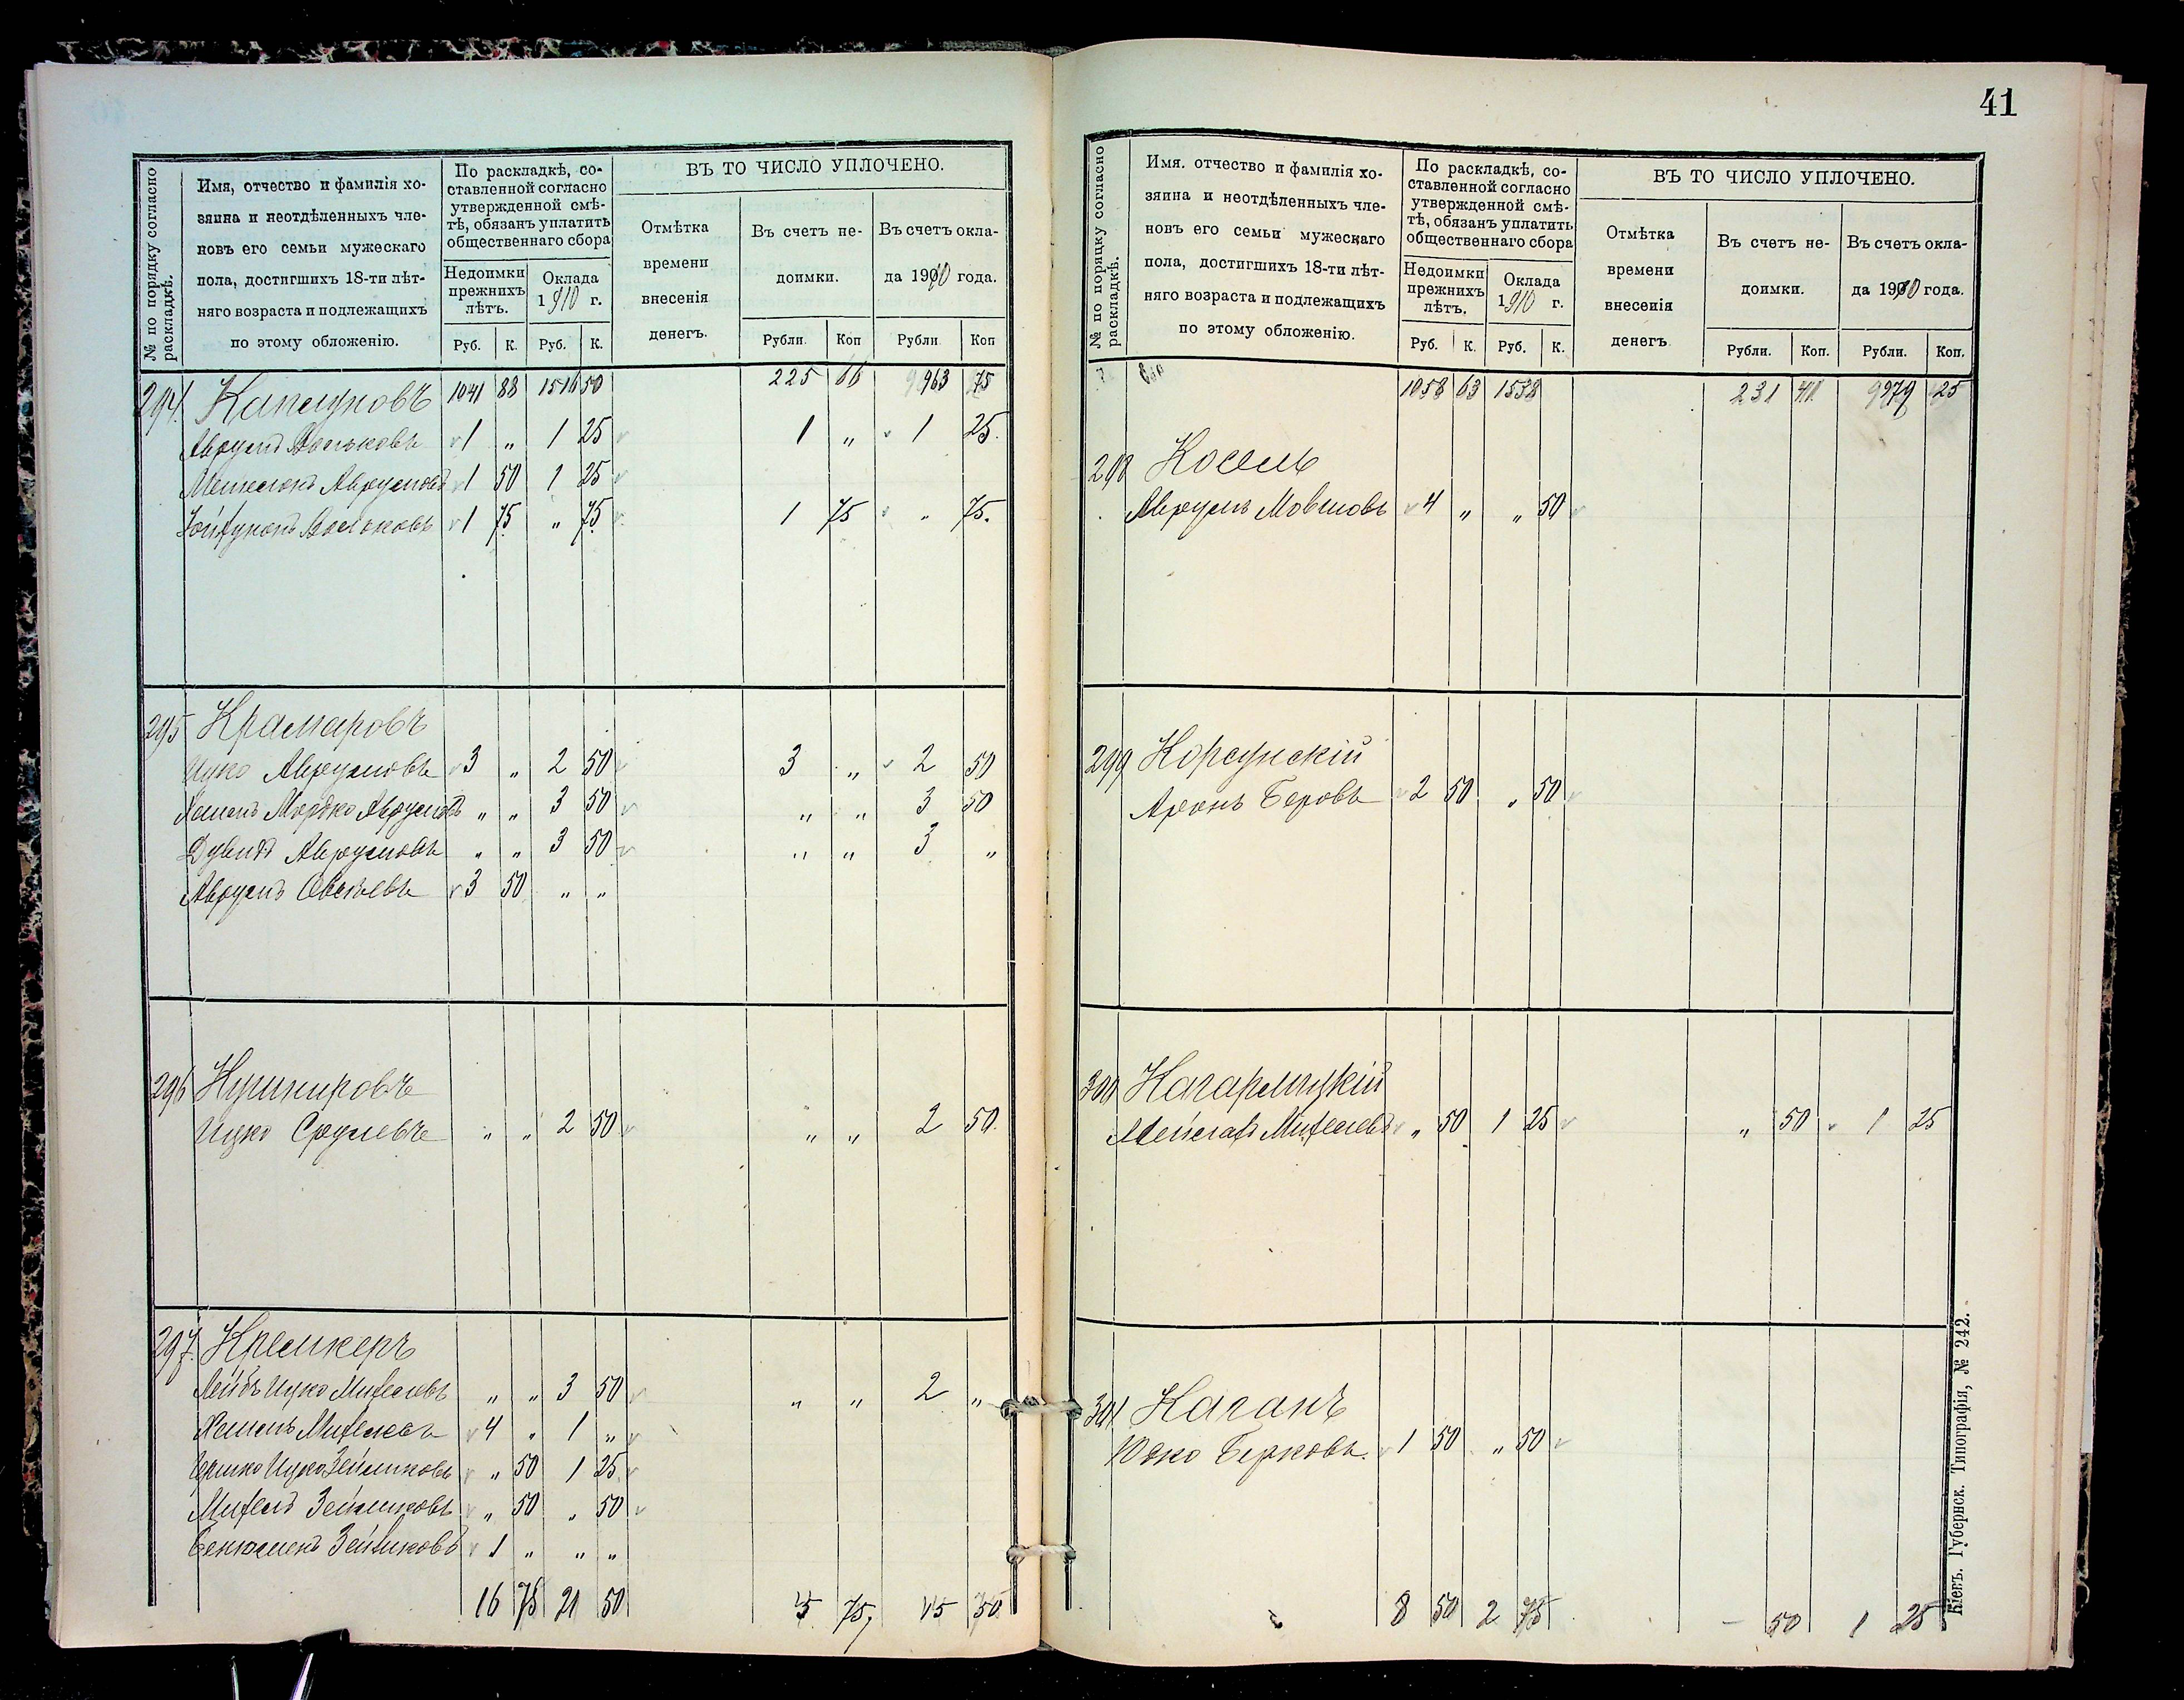 № по порядку согласно раскладкѣ.
Имя, отчество и фамилія хо-
зяина и неотдѣленныхъ чле-
новъ его семьи мужескаго
пола, достигшихъ 18-ти лѣт-
няго возраста и подлежащихъ
по этому обложенію.
По раскладкѣ, со-
ставленной согласно
утвержденной смѣ-
тѣ, обязанъ уплатить
общественнаго сбора
Недоимки
прежнихъ
лѣтъ.
Оклада
1910 г.
Руб. К. Руб. К.
ВЪ ТО ЧИСЛО УПЛОЧЕНО.
Отмѣтка
времени
внесенія
денегъ.
Въ счетъ не-
доимки.
Въ счетъ окла-
да 1910 года.
Рубли. Коп Рубли Коп
1041 88 1516 50 225 66 963 75
294.
Аврумъ 1 „ 1 25 1 „ 1 25.
Аврумовъ 1 50 1 25
1 75 „ 75 1 75 „ 75.
295 Крамаровъ
Ицко Аврумовъ 3 „ 2 50 3 „ 2 50
Мордко Аврумовъ „ „ 3 50 „ „ 3 50
Дувидъ Аврумовъ „ „ 3 50 „ „ 3 „
Аврумъ 3 50 „ „
296 Кушнировъ
Ицко Срулевъ „ „ 2 50 „ „ 2 50.
297. Кремкеръ
Лейбъ Ицко Михелевъ „ „ 3 50 „ „ 2 „
Михелевъ 4 „ 1 „
Гершко Ицко Зейликовъ „ 50 1 25
Михель Зейликовъ „ 50 „ 50
Зейликовъ 1 „ „ „
16 75 21 50 5 75, 15 50
41
№ по поряцку согласно раскладкѣ.
Имя. отчество и фамилія хо-
зяина и неотдѣленныхъ чле-
новъ его семьи мужескаго
пола, достигшихъ 18-ти лѣт-
няго возраста и подлежащихъ
по этому обложенію.
По раскладкѣ, со-
ставленной согласно
утвержденной смѣ-
тѣ, обязанъ уплатить
общественнаго сбора
Недоимки
прежнихъ
лѣтъ.
Оклада
1910 г.
Руб. К. Руб. К.
ВЪ ТО ЧИСЛО УПЛОЧЕНО.
Отмѣтка
времени
внесенія
денегъ.
Въ счетъ не-
доимки.
Въ счетъ окла-
да 1910 года.
Рубли. Коп. Рубли. Коп.
1058 63 1538 231 41 979 25
298 Косель
Аврумъ Мовшовъ 4 „ „ 50
299 Корсунскій
Аронъ Беровъ 2 50 „ 50
300 Кагарлицкій
Михелевъ „ 50 1 25 „ 50 1 25
301 Каганъ
Юзко Берковъ. 1 50 „ 50
8 50 2 75 – 50 1 25
Кіевъ. Губернск. Типографія, № 242.